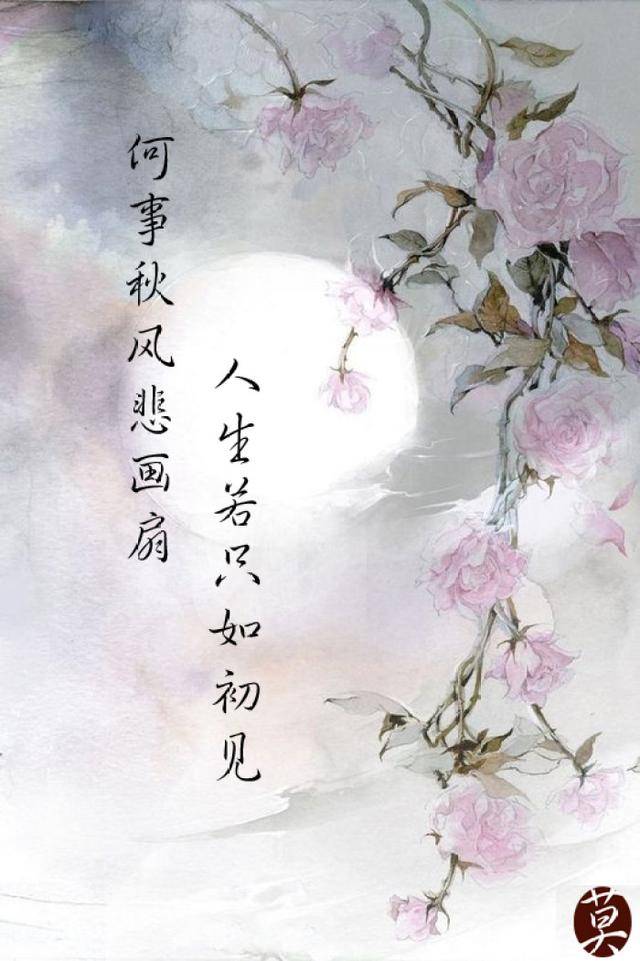 人生若只如初见
何事秋风悲画扇
莫